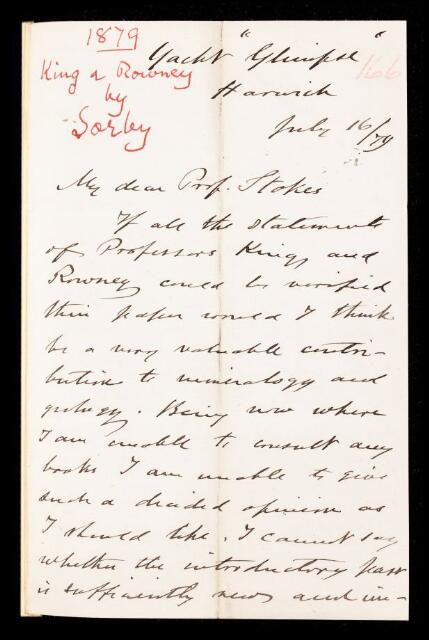 1879
King & Rowney
by
Sorby
166
Yacht "Glimpse"
Harwich
July 16/79
My dear Prof. Stokes
If all the statements
of Professors King and
Rowney could be verified
their paper would I think
be a very valuable contri-
bution to mineralogy and
geology. Being now where
I am unable to consult any
books I am unable to give
such a decided opinion as
I should like. I cannot say
whether the introductory part
is sufficiently new and im-